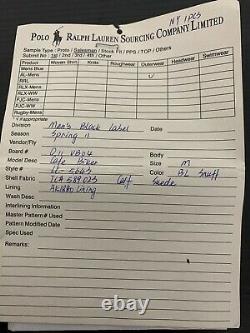 NY 1PCS
POLO RALPH LAUREN SOURCING COMPANY LIMITED
Sample Type : Proto / Salesman / Stock Fit / PPS / TOP / Others
Submit No : 1st / 2nd / 3rd / 4th / Other
Product Woven Shirt Knits Rough Outerwear Headwear Swimwear
Mens Blue
AL-Mens
RRL
RLX-Mens
RLX-WW
PJC-Mens
PJC-WW
Rugby-Mens
If appropriate
Division Men's Black Label
Season Spring 11
Vendor/Fly
Board # D11 VB04 Body
Model Desc Cafe Biker Size M
Style # Color BL Snuff
Shell Fabric TLA 589023 Calf Suede
Lining AK1880 Lining
Wash Desc
Interlining Information
Master Pattern # Used
Pattern Modified Date
Spec Used
Remarks: